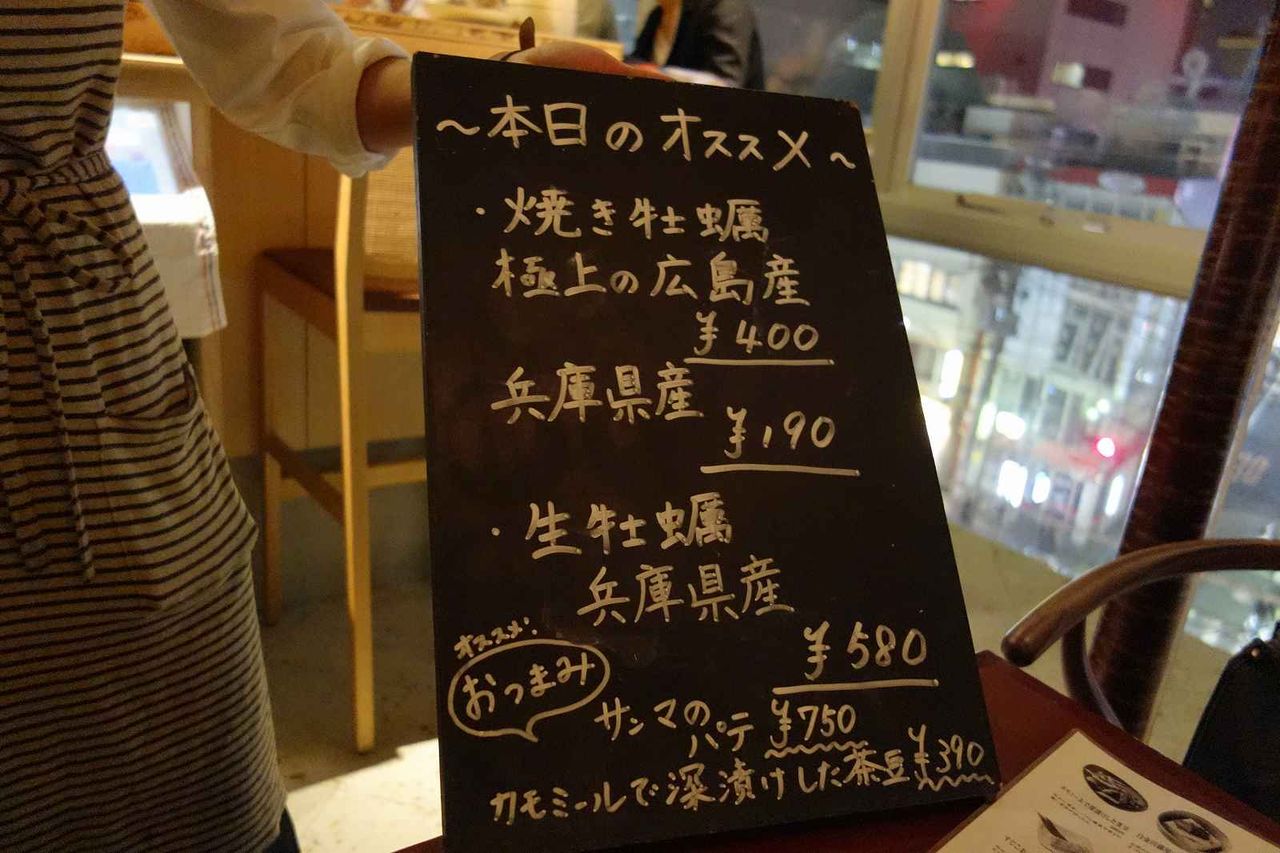 ～本日のオススメ～
・焼き牡蠣
極上の広島産
¥400
兵庫県産
¥190
・生牡蠣
兵庫県産
¥580
オススメ!
おつまみ
サンマの
パテ ¥750
カモミールで深漬けした茶豆 ¥390